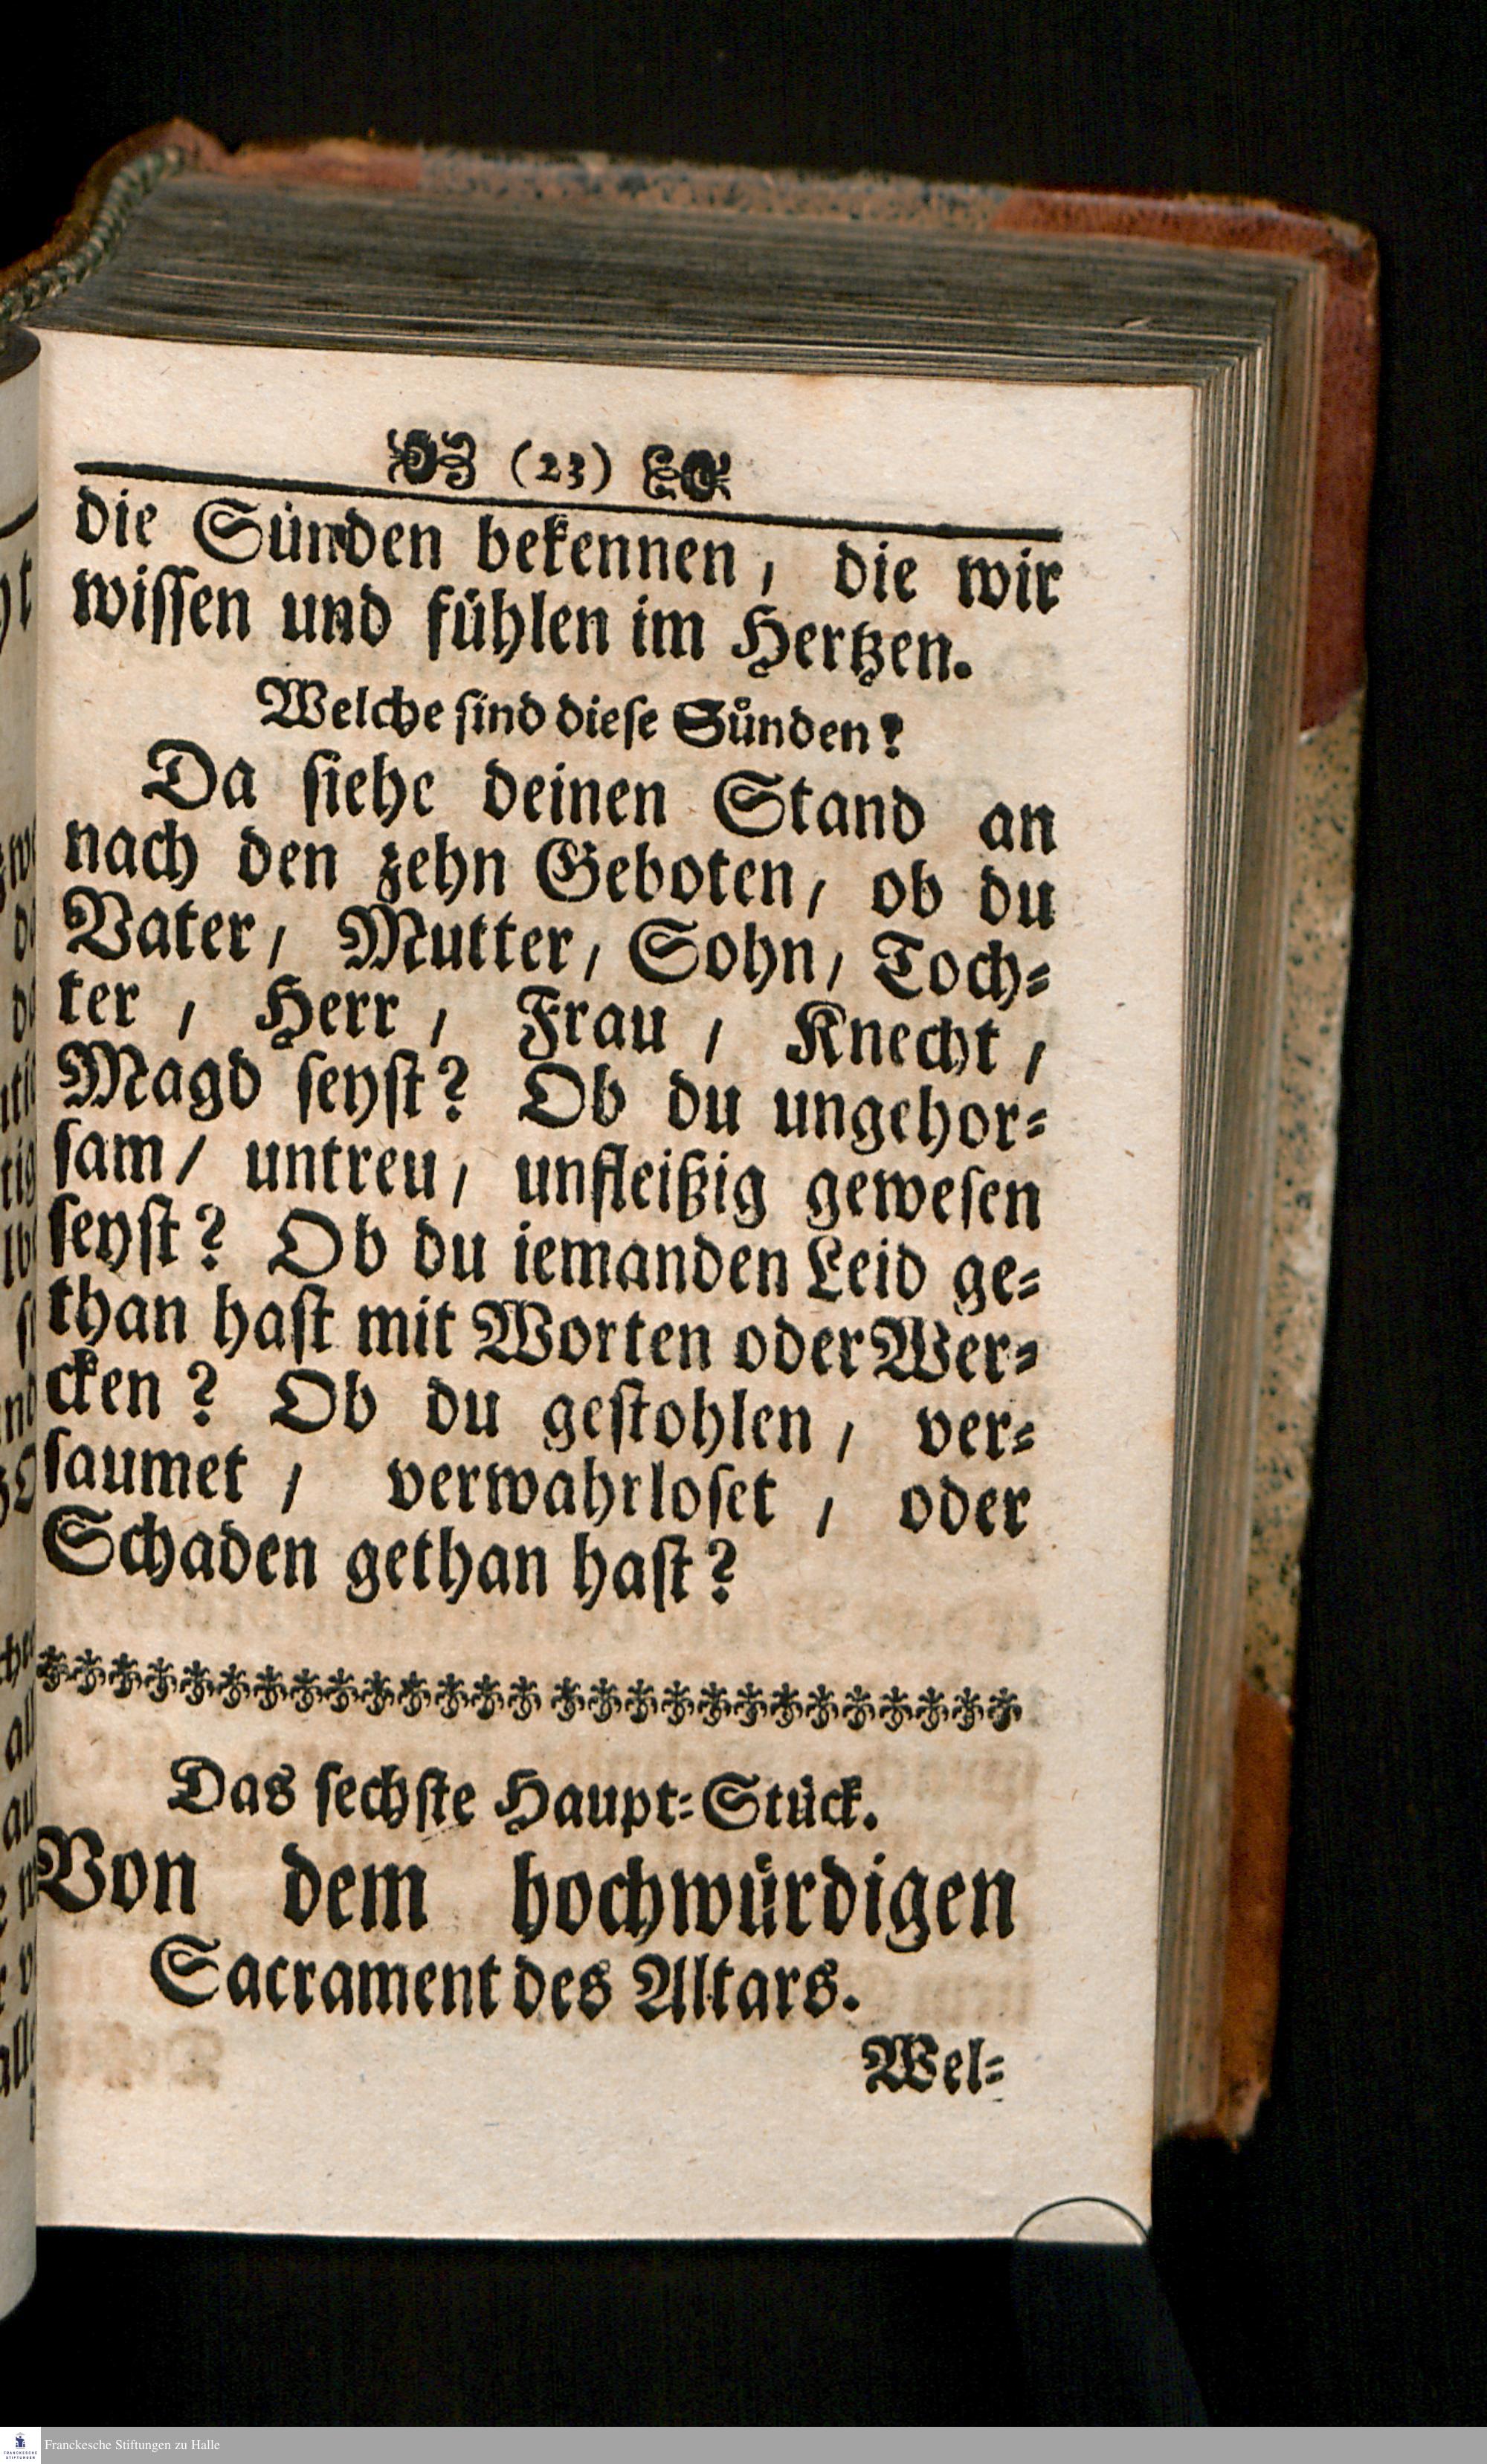 (23)
die Sünden bekennen, die wir
wissen und fühlen im Hertzen.
Welche sind diese Sünden?
Da siehe deinen Stand an
nach den zehn Geboten, ob du
Vater, Mutter, Sohn, Toch-
ter, Herr, Frau, Knecht,
Magd seyst? Ob du ungehor-
sam/ untreu, unfleißig gewesen
seyst? Ob du iemanden Leid ge-
than hast mit Worten oder Wer-
cken? Ob du gestohlen, ver-
saumet, verwahrloset, oder
Schaden gethan hast?
Das sechste Haupt-Stück.
Von dem hochwürdigen
Sacrament des Altars.
Wel-
Franckesche Stiftungen zu Halle